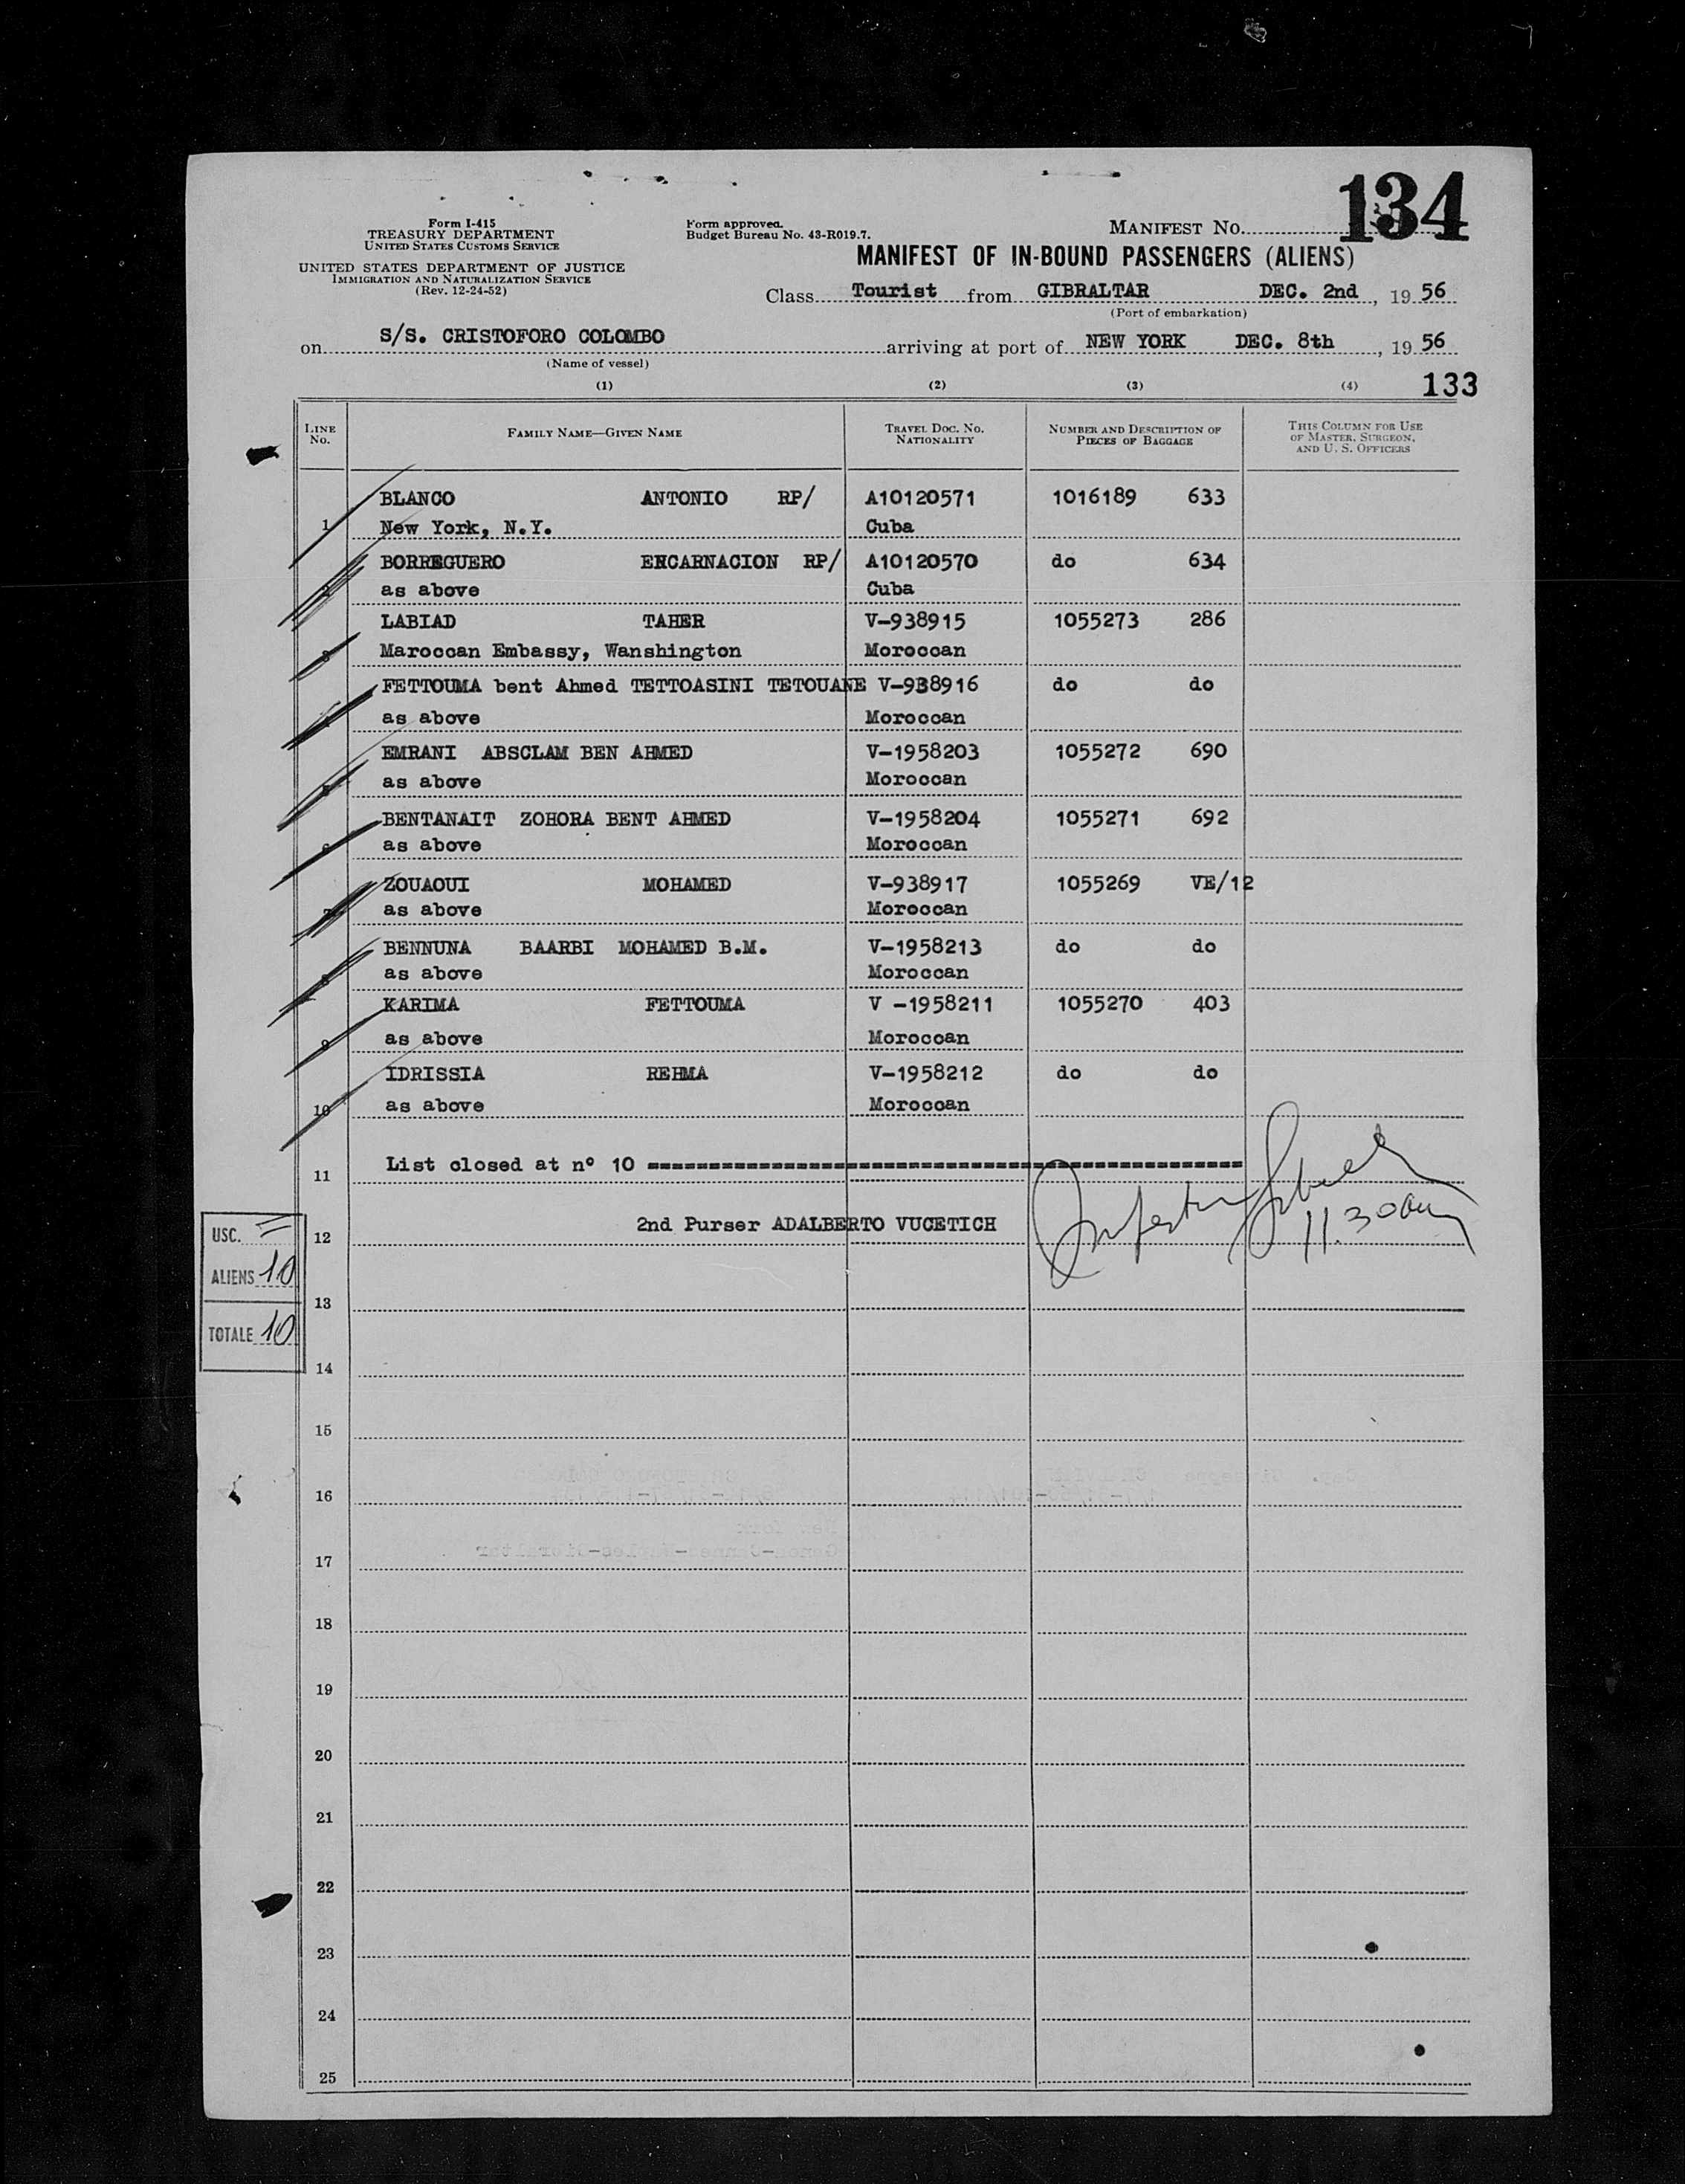 134
Form I-415
TREASURY DEPARTMENT
UNITED STATES CUSTOMS SERVICE
UNITED STATES DEPARTMENT OF JUSTICE
IMMIGRATION AND NATURALIZATION SERVICE
(Rev. 12-24-52)
Form approved.
Budget Bureau No. 43-R019.7.
MANIFEST No.
MANIFEST OF IN-BOUND PASSENGERS (ALIENS)
Class Tourist from GIBRALTAR DEC. 2nd, 19 56
(Port of embarkation)
on S/S. CRISTOFORO COLOMBO arriving at port of NEW YORK DEC. 8th, 19 56
(Name of vessel)
(1) (2) (3) (4) 133
LINE No. FAMILY NAME—GIVEN NAME TRAVEL DOC. NO. NATIONALITY NUMBER AND DESCRIPTION OF PIECES OF BAGGAGE THIS COLUMN FOR USE OF MASTER, SURGEON, AND U. S. OFFICERS
BLANCO ANTONIO RP/ A10120571 1016189 633
1 New York, N.Y. Cuba
BORREGUERO ENCARNACION RP/ A10120570 do 634
2 as above Cuba
LABIAD TAHER V-938915 1055273 286
3 Maroccan Embassy, Wanshington Moroccan
FETTOUMA bent Ahmed TETTOASINI TETOUANE V-938916 do do
4 as above Moroccan
EMRANI ABSCLAM BEN AHMED V-1958203 1055272 690
5 as above Moroccan
BENTANAIT ZOHORA BENT AHMED V-1958204 1055271 692
6 as above Moroccan
ZOUAOUI MOHAMED V-938917 1055269 VE/12
7 as above Moroccan
BENNUNA BAARBI MOHAMED B.M. V-1958213 do do
8 as above Moroccan
KARIMA FETTOUMA V -1958211 1055270 403
9 as above Moroccan
IDRISSIA REHMA V-1958212 do do
10 as above Moroccan
List closed at nº 10
11
2nd Purser ADALBERTO VUCETICH
11.30am
12
USC. =
ALIENS 10
TOTALE 10
13
14
15
16
17
18
19
20
21
22
23
24
25